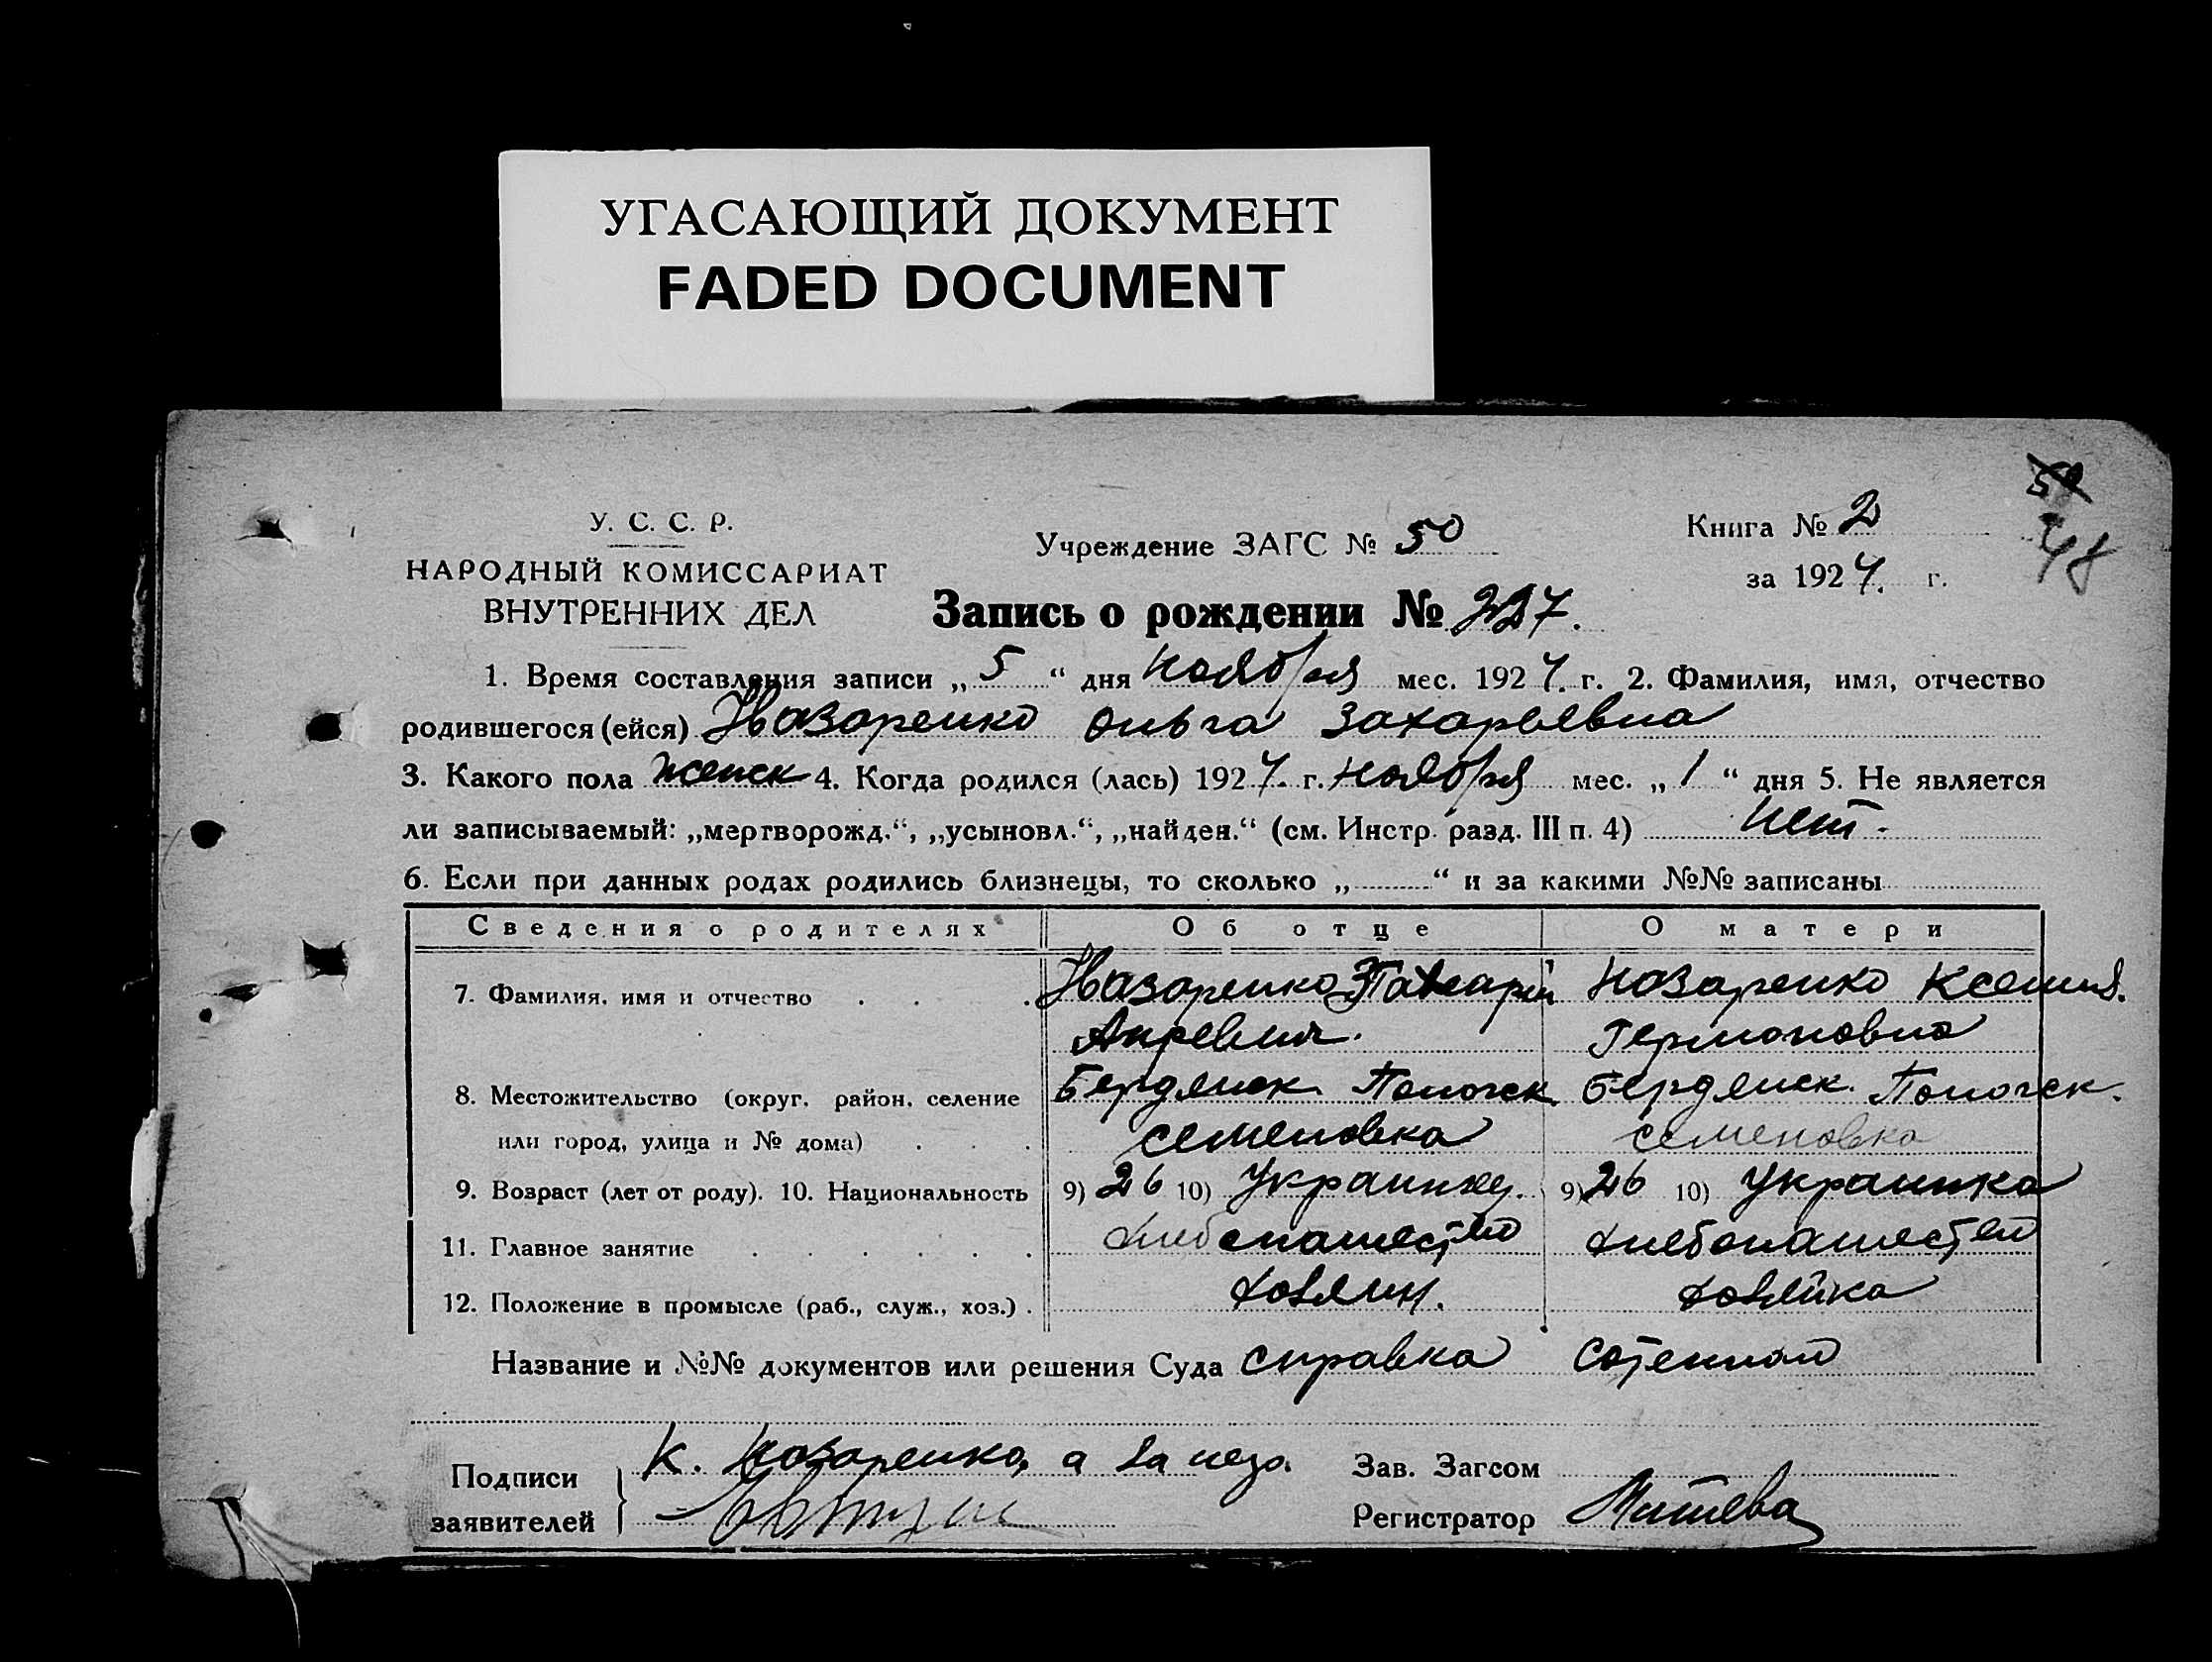 УГАСАЮЩИЙ ДОКУМЕНТ
FADED DOCUMENT
50
48
У. С. С. Р.
НАРОДНЫЙ КОМИССАРИАТ
ВНУТРЕННИХ ДЕЛ
Учреждение ЗАГС № 50
Книга № 2
за 1924. г.
Запись о рождении № 227.
1. Время составления записи „5“ дня ноября мес. 1924. г. 2. Фамилия, имя, отчество
родившегося (ейся) Назаренко Ольга Захарьевна
3. Какого пола женск 4. Когда родился (лась) 1924. г. ноября мес. „1“ дня 5. Не является
ли записываемый: „мертворожд.“, „усыновл.“, „найден.“ (см. Инстр. разд. III п. 4) нет.
6. Если при данных родах родились близнецы, то сколько „ “ и за какими №№ записаны
Сведения о родителях Об отце О матери
7. Фамилия, имя и отчество Назаренко Назаренко Ксения.
Германовна
8. Местожительство (округ, район, селение Бердянск. Пологск. Бердянск. Пологск.
или город, улица и № дома) Семеновка Семеновка
9. Возраст (лет от роду). 10. Национальность 9) 26 10) Украинец. 9) 26 10) Украинка
11. Главное занятие хлебопашество хлебопашество
12. Положение в промысле (раб., служ., хоз.) хозяин. хозяйка
Название и №№ документов или решения Суда справка
Подписи
заявителей
К. Назаренко, а за негр.
Зав. Загсом
Регистратор